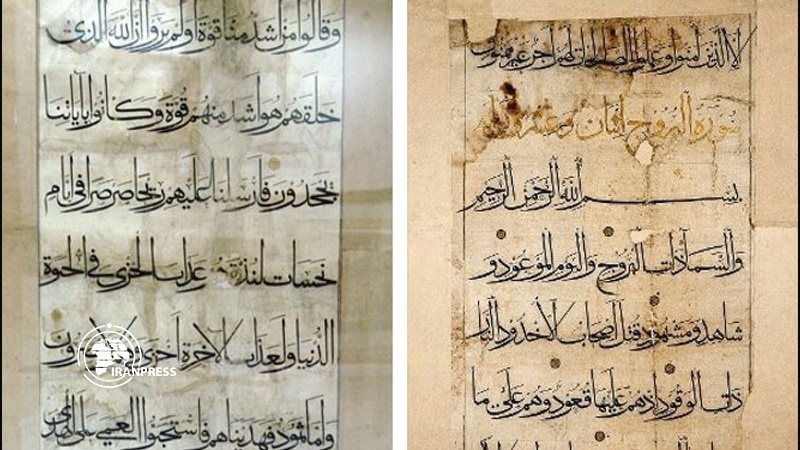 وَقَالُوا مَنْ اَشَدُّ مِنَّا قُوَّةً اَوَلَمْ يَرَوْا اَنَّ اللّٰهَ الَّذِى
خَلَقَهُمْ هُوَ اَشَدُّ مِنْهُمْ قُوَّةً وَكَانُوا بِاٰيَاتِنَا
يَجْحَدُونَ فَاَرْسَلْنَا عَلَيْهِمْ رِيحًا صَرْصَرًا فِى اَيَّامٍ
نَحِسَاتٍ لِنُذِيقَهُمْ عَذَابَ الْخِزْىِ فِى الْحَيٰوةِ
الدُّنْيَا وَلَعَذَابُ الْاٰخِرَةِ اَخْزٰى
وَاَمَّا ثَمُودُ فَهَدَيْنَاهُمْ فَاسْتَحَبُّوا الْعَمٰى عَلَى الْهُدٰى
IRANPRESS
اِلَّا الَّذِينَ اٰمَنُوا وَعَمِلُوا الصَّالِحَاتِ لَهُمْ اَجْرٌ غَيْرُ مَمْنُونٍ
سورة البروج اثنان وعشرون
بِسْمِ اللّٰهِ الرَّحْمٰنِ الرَّحِيمِ
وَالسَّمَاءِ ذَاتِ الْبُرُوجِ وَالْيَوْمِ الْمَوْعُودِ وَ
شَاهِدٍ وَمَشْهُودٍ قُتِلَ اَصْحَابُ الْاُخْدُودِ النَّارِ
ذَاتِ الْوَقُودِ اِذْ هُمْ عَلَيْهَا قُعُودٌ وَهُمْ عَلٰى مَا